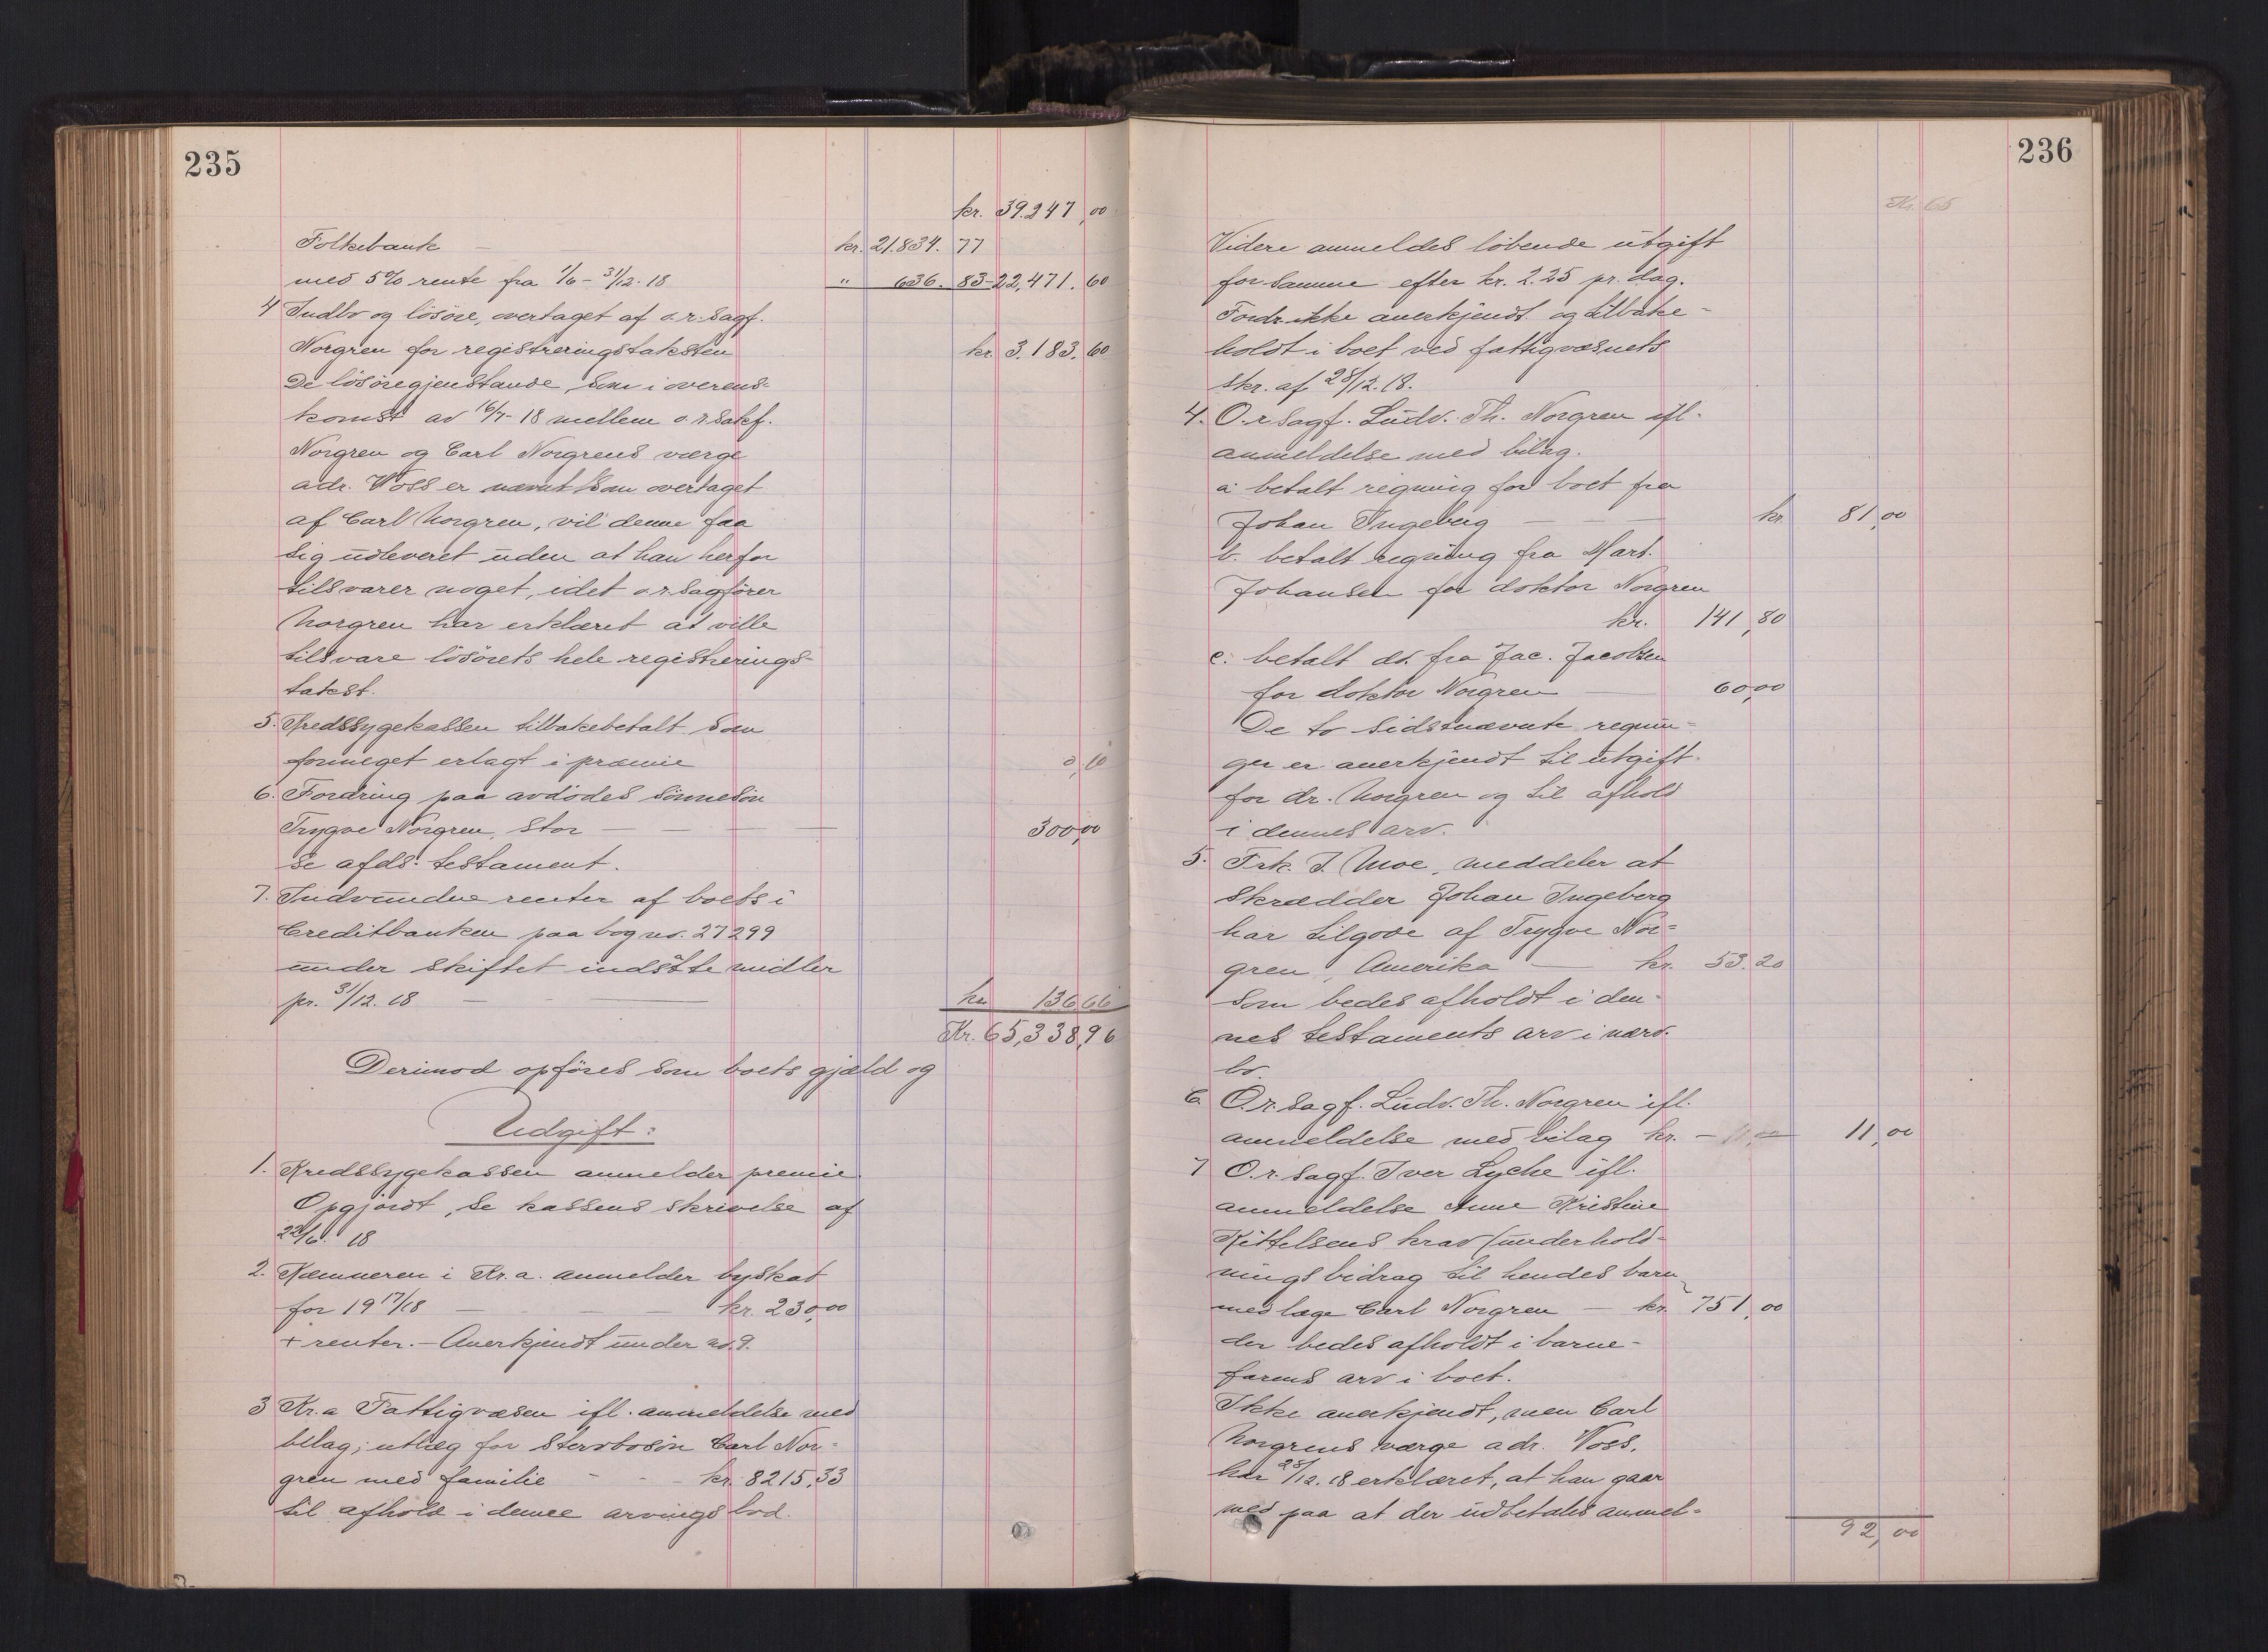 235
kr. 39.247,00
Folkebank – kr. 21.834. 77
med 5% rente fra 1/6 - 31/12. 18 " 636. 83 - 22,471. 60
4 Indbo og lösöre, overtaget af o.r. sagf.
Norgren for registreringstaksten kr. 3.183. 60
De lösöregjenstande, som i overens-
komst av 16/7- 18 mellem o.r.sakf.
Norgren og Carl Norgrens værge
adv. Voss er nævnt som overtaget
af Carl Norgren, vil denne faa
sig udleveret uden at han herfor
tilsvarer noget, idet o.r. sagförer
Norgren har erklæret at ville
tilsvare lösörets hele registrerings-
takst.
5. Kredssygekassen tilbakebetalt som
formeget erlagt i præmie 0,10
6. Fordring paa avdödes sönnesön
Trygve Norgren, stor – – – – 300,00
se afds. testament.
7. Indvundne renter af boets i
Creditbanken paa bog no. 27299
under skiftet indsatte midler
pr. 31/12. 18 – – kr. 136 66
Kr. 65,338,96
Derimod opföres som boets gjæld og
Udgift:
1. Kredssygekassen anmelder premie.
Opgjordt, se kassens skrivelse af
22/6. 18
2. Kæmneren i Kr.a. anmelder byskat
for 1917/18 – – – kr. 230,00
+ renter. – Anerkjendt under no. 9.
3 Kr.a Fattigvæsen ifl. anmeldelse med
bilag; utlæg for stervbosön Carl Nor-
gren med familie - - kr. 8215,33
til afhold i denne arvings lod.
236
Kr. 65
Videre anmeldes löbende utgift
for samme efter kr. 2.25 pr. dag.
Fordr. ikke anerkjendt og tilbake-
holdt i boet ved fattigvæsnets
skr. af 28/12. 18.
4. O.r. sagf. Ludv. Th. Norgren ifl.
anmeldelse med bilag.
a: betalt regning for boet fra
Johan Ingeberg – – kr. 81,00
b. betalt regning fra Mart.
Johansen for doktor Norgren
kr. 141,80
c: betalt do. fra Jac. Jacobsen
for doktor Norgren – 60,00
De to sidstnævnte regnin-
ger er anerkjendt til utgift
for dr. Norgren og til afhold
i dennes arv.
5. Frk. J. Moe, meddeler at
skrædder Johan Ingeberg
har tilgode af Trygve Nor-
gren, Amerika – kr. 53.20
som bedes afholdt i den-
nes testaments arv i nærv.
bo.
6 O.r. sagf. Ludv. Th. Norgren ifl.
anmeldelse med bilag kr. – 11,00 11,00
7 O.r. sagf. Iver Lyche ifl.
anmeldelse Anne Kristine
Kittelsens krav (underhold-
ningsbidrag til hendes barn
med læge Carl Norgren – kr. 751,00
der bedes afholdt i barne-
farens arv i boet.
Ikke anerkjendt, men Carl
Norgrens værge adv. Voss,
har 28/12. 18 erklæret, at han gaar
med paa at der udbetales anmel-
92,00